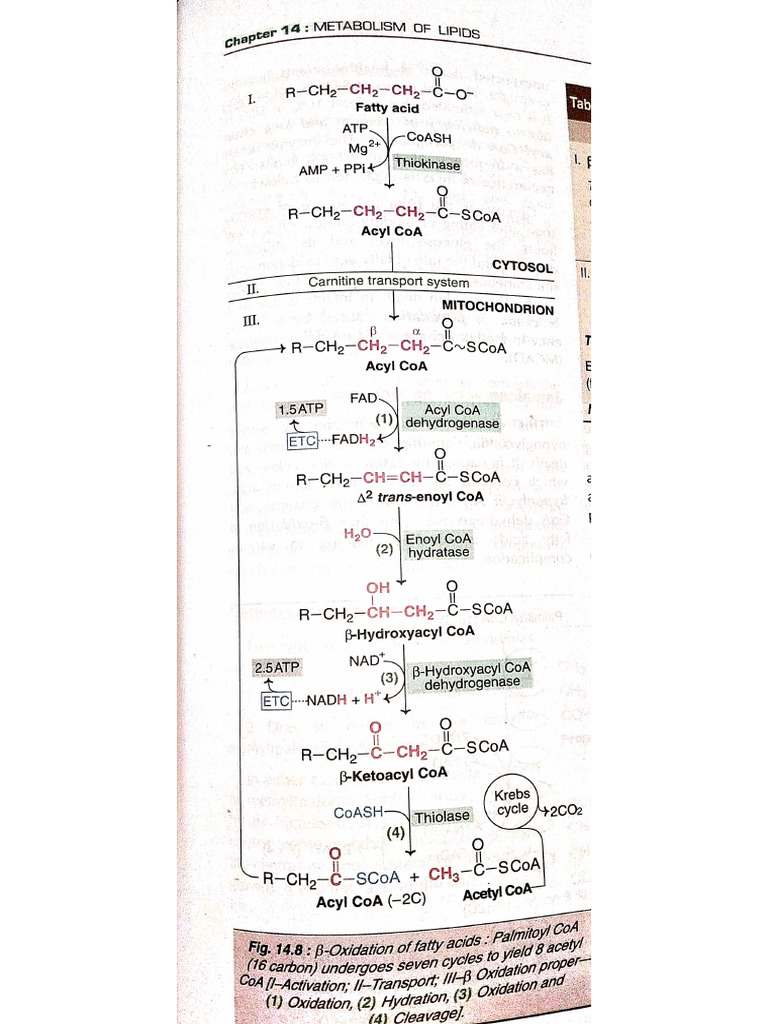 Chapter 14 : METABOLISM OF LIPIDS
I.
O
R–CH₂–CH₂–CH₂–C–O⁻
Fatty acid
ATP
CoASH
Mg²⁺
Thiokinase
AMP + PPi
O
R–CH₂–CH₂–CH₂–C–SCoA
Acyl CoA
CYTOSOL
II.
Carnitine transport system
MITOCHONDRION
III.
β α O
R–CH₂–CH₂–CH₂–C~SCoA
Acyl CoA
FAD
1.5 ATP
(1)
Acyl CoA
dehydrogenase
ETC FADH₂
O
R–CH₂–CH=CH–C–SCoA
Δ² trans-enoyl CoA
H₂O
(2)
Enoyl CoA
hydratase
OH O
R–CH₂–CH–CH₂–C–SCoA
β-Hydroxyacyl CoA
NAD⁺
2.5 ATP
(3)
β-Hydroxyacyl CoA
dehydrogenase
ETC NADH + H⁺
O O
R–CH₂–C–CH₂–C–SCoA
β-Ketoacyl CoA
Krebs
cycle
2CO₂
CoASH
Thiolase
(4)
O O
R–CH₂–C–SCoA + CH₃–C–SCoA
Acyl CoA (–2C) Acetyl CoA
Fig. 14.8 : β-Oxidation of fatty acids : Palmitoyl CoA
(16 carbon) undergoes seven cycles to yield 8 acetyl
CoA [I–Activation; II–Transport; III–β Oxidation proper–
(1) Oxidation, (2) Hydration, (3) Oxidation and
(4) Cleavage].
Tab
I.
II.